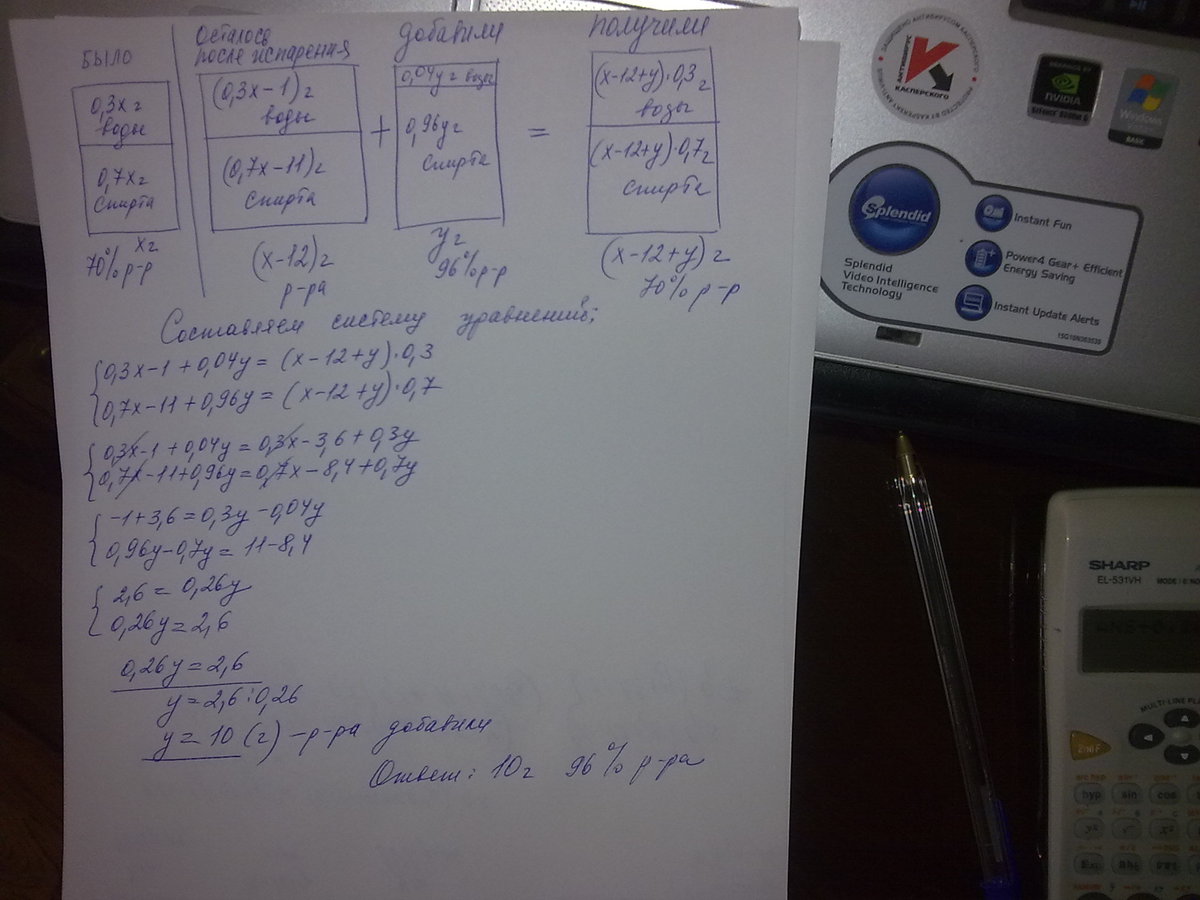 было
Осталось
после испарения
добавили
получили
0,3x г
воды
0,7x г
спирта
x г
70% р-р
(0,3x-1) г
воды
(0,7x-11) г
спирта
(x-12) г
р-ра
+
0,04y г воды
0,96y г
спирта
y г
96% р-р
=
(x-12+y)·0,3 г
воды
(x-12+y)·0,7 г
спирта
(x-12+y) г
70% р-р
Составляем систему уравнений:
0,3x-1+0,04y=(x-12+y)·0,3
0,7x-11+0,96y=(x-12+y)·0,7
0,3x-1+0,04y=0,3x-3,6+0,3y
0,7x-11+0,96y=0,7x-8,4+0,7y
-1+3,6=0,3y-0,04y
0,96y-0,7y=11-8,4
2,6=0,26y
0,26y=2,6
0,26y=2,6
y=2,6:0,26
y=10 (г) -р-ра добавили
Ответ: 10г 96% р-ра
ЗАЩИЩЕНО АНТИВИРУСОМ КАСПЕРСКОГО
АНТИВИРУС
КАСПЕРСКОГО
PROTECTED BY KASPERSKY ANTI-VIRUS
NVIDIA
Windows
BASIC
Splendid
Splendid
Video Intelligence
Technology
Instant Fun
Power4 Gear+ Efficient
Energy Saving
Instant Update Alerts
SHARP
EL-531VH
MODE
MULTI-LINE
2ndF
arc hyp
hyp
sin
cos